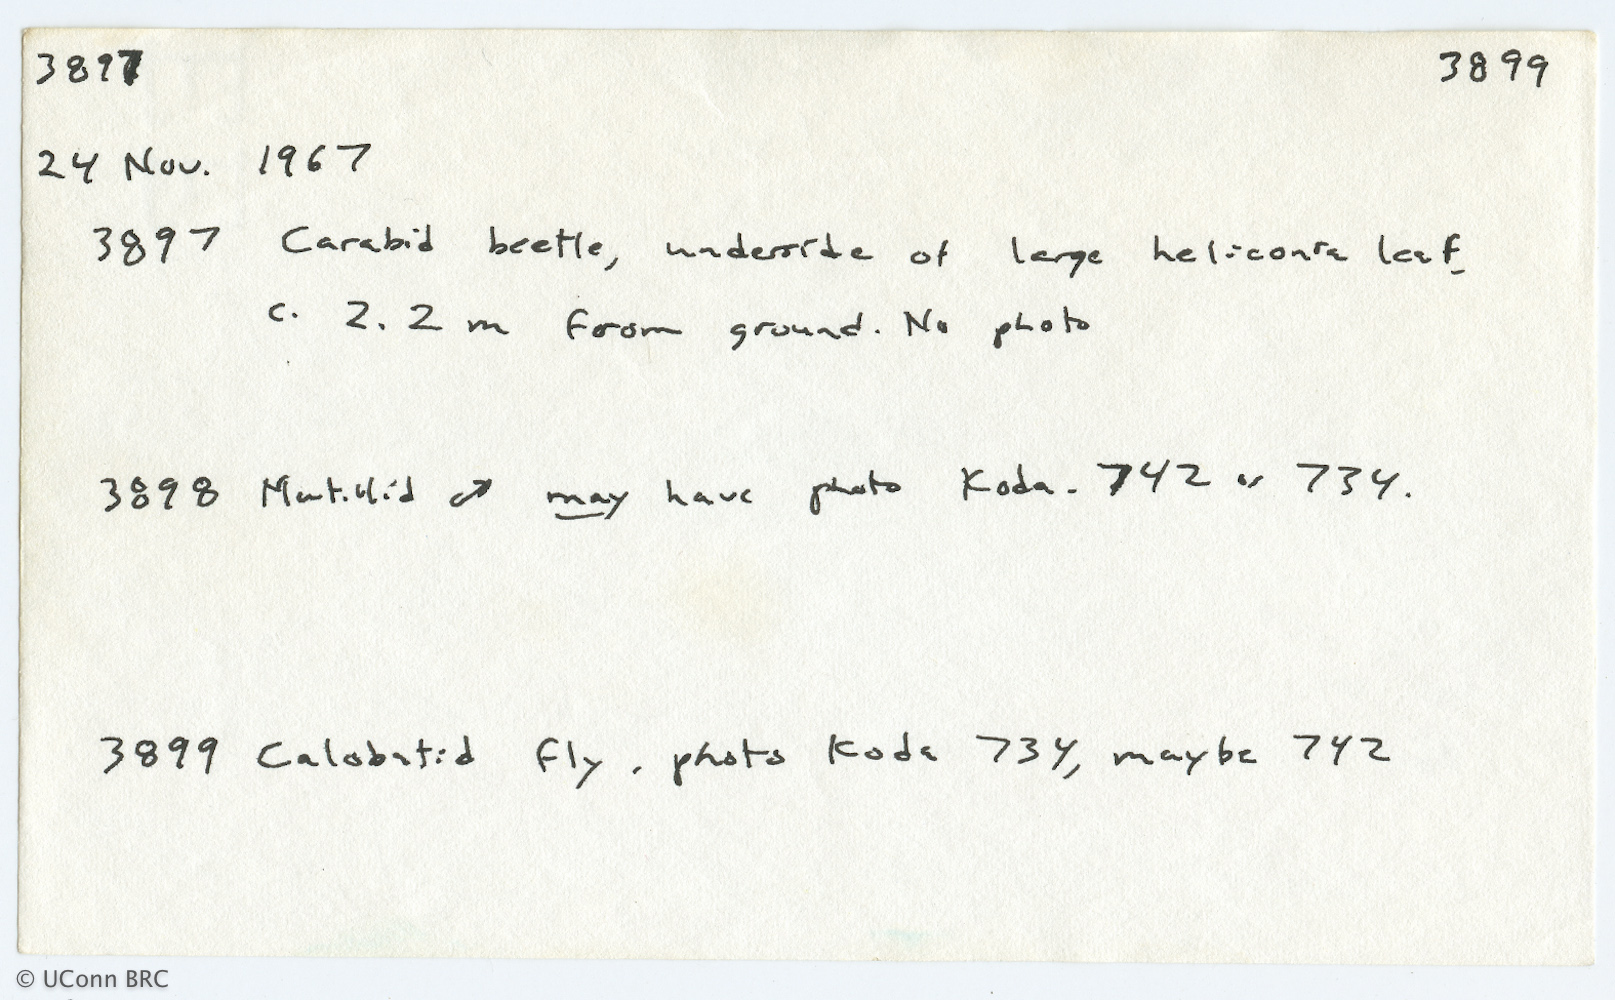 3897 3899
24 Nov. 1967
3897 Carabid beetle, underside of large heliconia leaf
c. 2.2 m from ground. No photo
3898 Mutillid ♂ may have photo Koda. 742 or 734.
3899 Calobatid fly, photo Koda 734, maybe 742
© UConn BRC